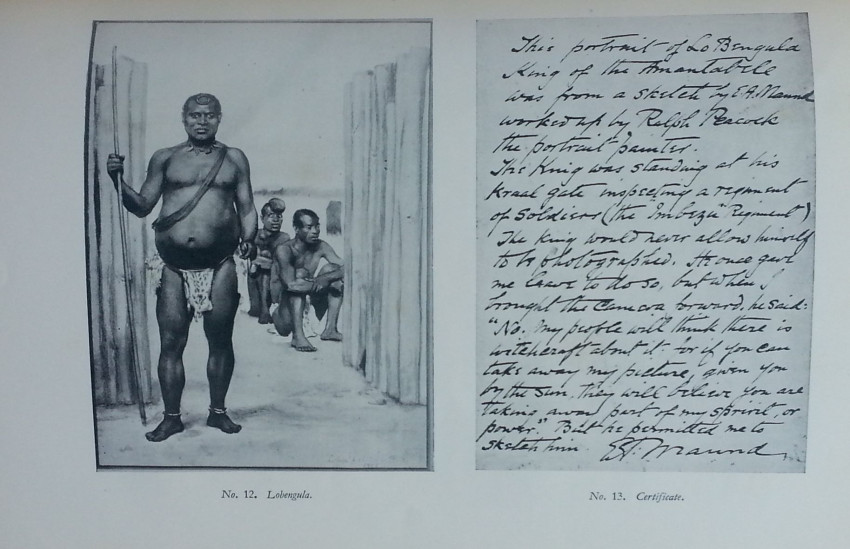 This portrait of Lo Bengula
King of the Amantabele
was from a sketch by E A. Maund
worked up by Ralph Peacock
the portrait painter.
The King was standing at his
Kraal gate inspecting a regiment
of Soldiers (the "Imbezu" Regiment)
The King would never allow himself
to be photographed. He once gave
me leave to do so, but when I
brought the Camera forward, he said:
"No. My people will think there is
witchcraft about it for if you can
take away my picture, given you
by the sun, they will believe you are
taking away part of my spirit, or
power." But he permitted me to
sketch him. EA. Maund
No. 12. Lobengula.
No. 13. Certificate.